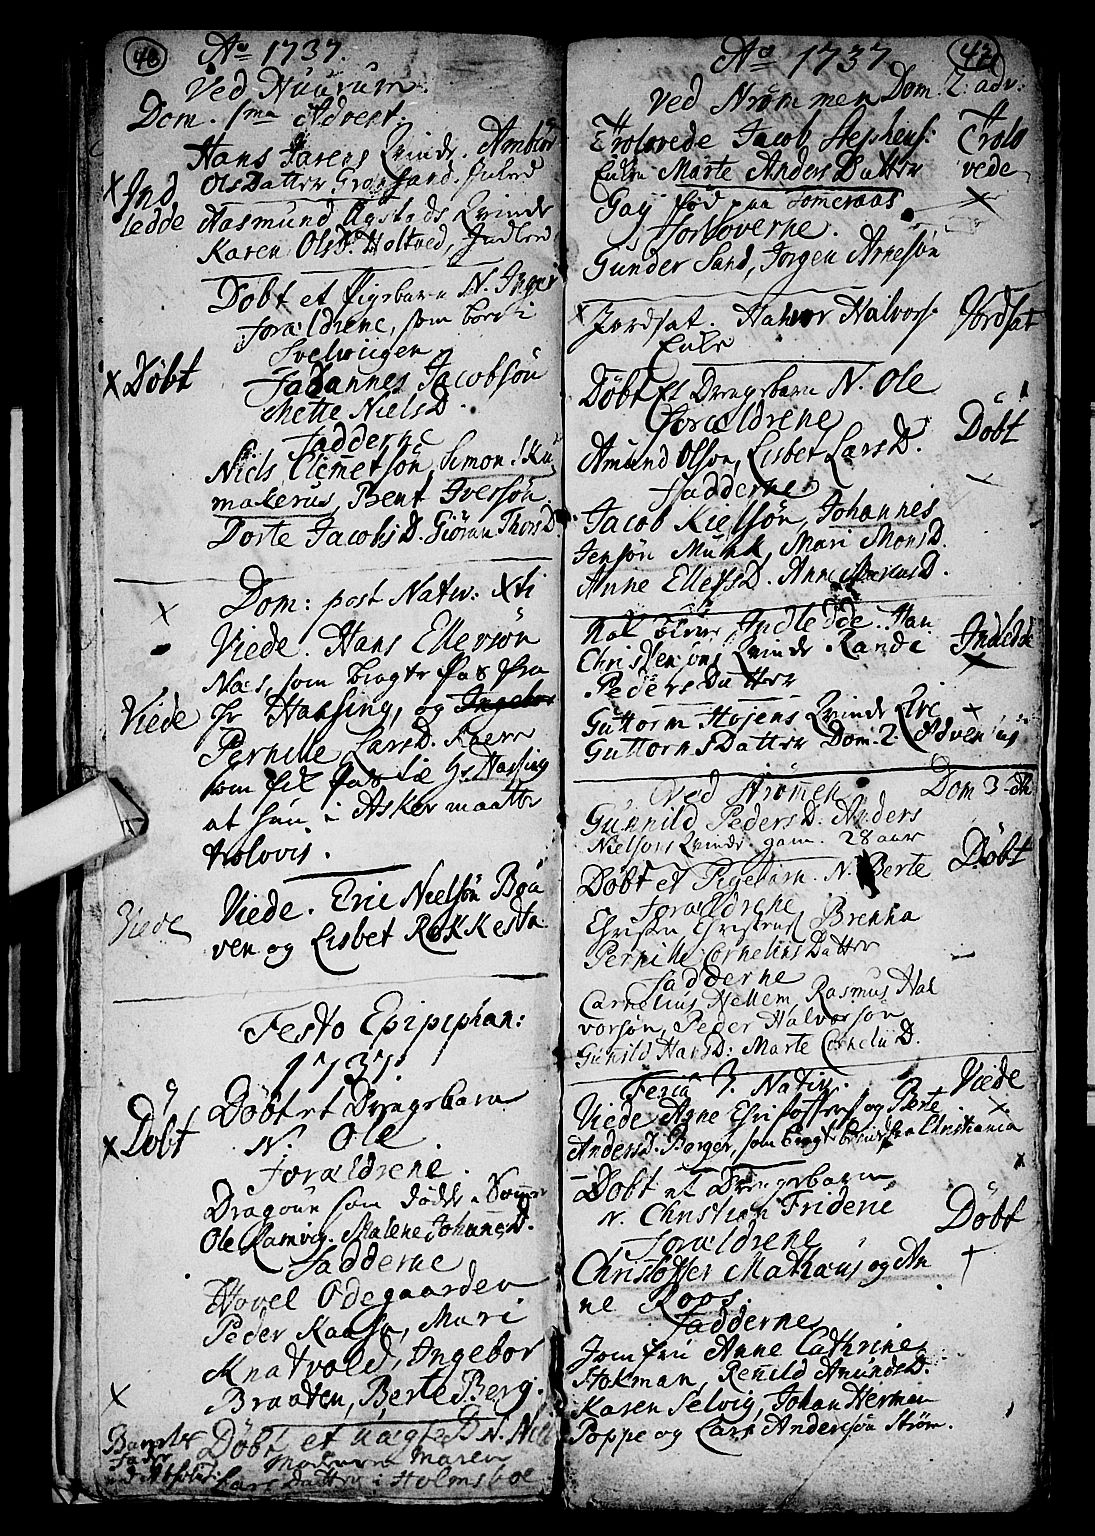 40
Ao 1737.
Ved Huurum.
Dom. 1ma Advent.
Hans Qvinde.
Ind
OlsDatter Grønsand. Inled
ledde
Aasmund Qvinde
Karen OlsD. Holtved, Indled
Døbt et Pigebarn N. Inger
Forældrene, som boed i
Svelviigen
Døbt
Johannes Jacobsøn
Mette NielsD.
Fadderne
Niels Clemetsøn, Simon Sku
makerus, Bent Iversøn.
Dorte JacobsD. Giøran ThorsD.
Dom: post Nativ. Xti
Viede. Hans Ellevsøn
Næs, som bragte Pas fra
Viede
Hr Hassing, og Ingebor
Pernille LarsD. Kaern
som fik Pas til Hr Hassing
at hun i Asker maatte
trolovis.
Viede
Viede. Eric Nielsøn Bøu
ven og Lisbet Røkkestn
Festo Epipiphan:
1737.
Døbt
Døbt et Drengebarn
N. Ole.
Forældrene.
Dragoun som døde i Sommer
Ole Ramvig. Malene JohannesD.
Fadderne
Hovel Odegaarden
Peder Kaasa, Mari
Knatvold, Ingebor
Braaten, Berte Berg.
Døbt et uægte B. N. Niels
Fader
Moderen Maren
LarsDatter i Holmsboe
Ao 1737
Ved Strømmen Dom. 2. adv:
Trolovede Jacob Stephens:
Trolo
Enke Marte AndersDatter
vede
Gay fød paa Someraas
Forloverne.
Gunder Sand, Jørgen Arnesøn
Jordsat. Halvor Halvors.
Jordsat
Enke
Døbt Et Drengebarn N. Ole
Forældrene
Døbt
Amund Olsøn, Lisbet LarsD.
Fadderne
Jacob Kielsøn, Johannes
Jensøn Munk, Mari MonsD.
Anne EllefsD. Anne
Indledde. Han
Indledde
Christensøns Qvinde Randi
PedersDatter
Guttorm Hojens Qvinde Live
GuttormsDatter Dom. 2 Adventus
Ved Strømen
Dom 3
Gunnild PedersD. Anders
Nielsøns Qvinde gam. 28 aar
Døbt
Døbt et Pigebarn. N. Berte
Forældrene
Christen Christens Brenna
Pernille CorneliusDatter
Fadderne
Cornelius Hellem, Rasmus Hal
vorsøn, Peder Halvorsøn
Gunild HansD: Marte CorneliiD.
Feria 3. Nativ.
Viede
Viede Arne Christoffers og Berte
AndersD. Berger, som bragt beviis fra Christiania
Døbt et Drengebarn
N. Christian Frideric
Døbt
Forældrene
Christoffer Mathæus og An
ne Roos.
Fadderne
Jomfru Anne Cathrine
Stokman, Rennild AmundsD.
Karen Selvig, Johan Herman
Poppe og Lars Andersøn Strøm.